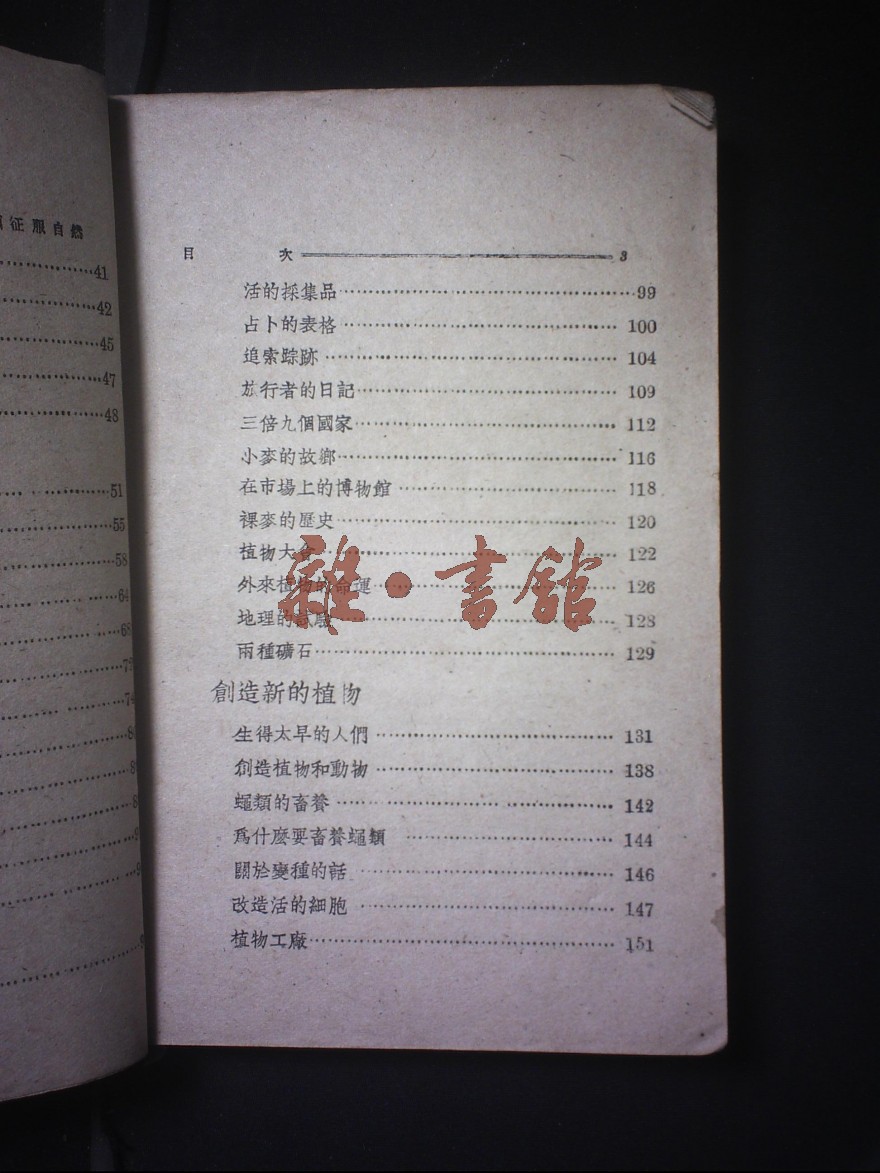 征服自然
41
42
45
47
48
51
55
58
64
68
74
目 次 3
活的採集品 99
占卜的表格 100
追索踪跡 104
旅行者的日記 109
三倍九個國家 112
小麥的故鄉 116
在市場上的博物館 118
裸麥的歷史 120
植物大會 122
外來植物的命運 126
地理的試驗 128
兩種礦石 129
創造新的植物
生得太早的人們 131
創造植物和動物 138
蠅類的畜養 142
爲什麼要畜養蠅類 144
關於變種的話 146
改造活的細胞 147
植物工廠 151
雜·書館